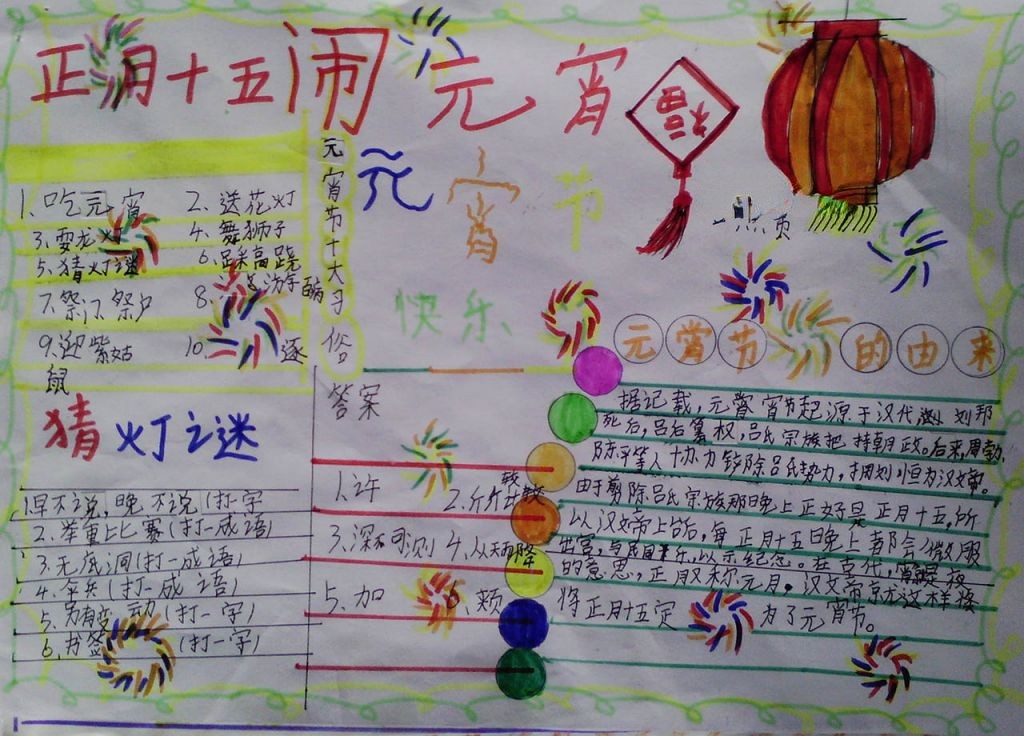 正月十五闹元宵
福
元宵节
快乐
元宵节十大习俗
1、吃元宵 2、送花灯
3、耍龙灯 4、舞狮子
5、猜灯谜 6、踩高跷
7、祭门、祭户 8、
9、迎紫姑 10、逐
鼠
猜灯之谜
1.早不说,晚不说(打一字
2.举重比赛(打一成语)
3.无底洞(打一成语)
4.伞兵(打一成语)
5、另有变动(打一字)
6、书签(打一字)
答案
1、许 2、斤斤计较
3、深不可测 4、从天而降
5、加 6、颊
元宵节的由来
据记载,元宵节起源于汉代 刘邦
死后,吕后篡权,吕氏宗族把持朝政。后来,周勃、
陈平等人协力铲除吕氏势力,拥刘恒为汉文帝。
由于剪除吕氏宗族那晚上正好是正月十五,所
以汉文帝上台后,每正月十五日晚上都会微服
出宫,与民同乐,以示纪念。在古代,宵 夜
的意思,正月又称元月。汉文帝 就这样将
将正月十五定为了元宵节。